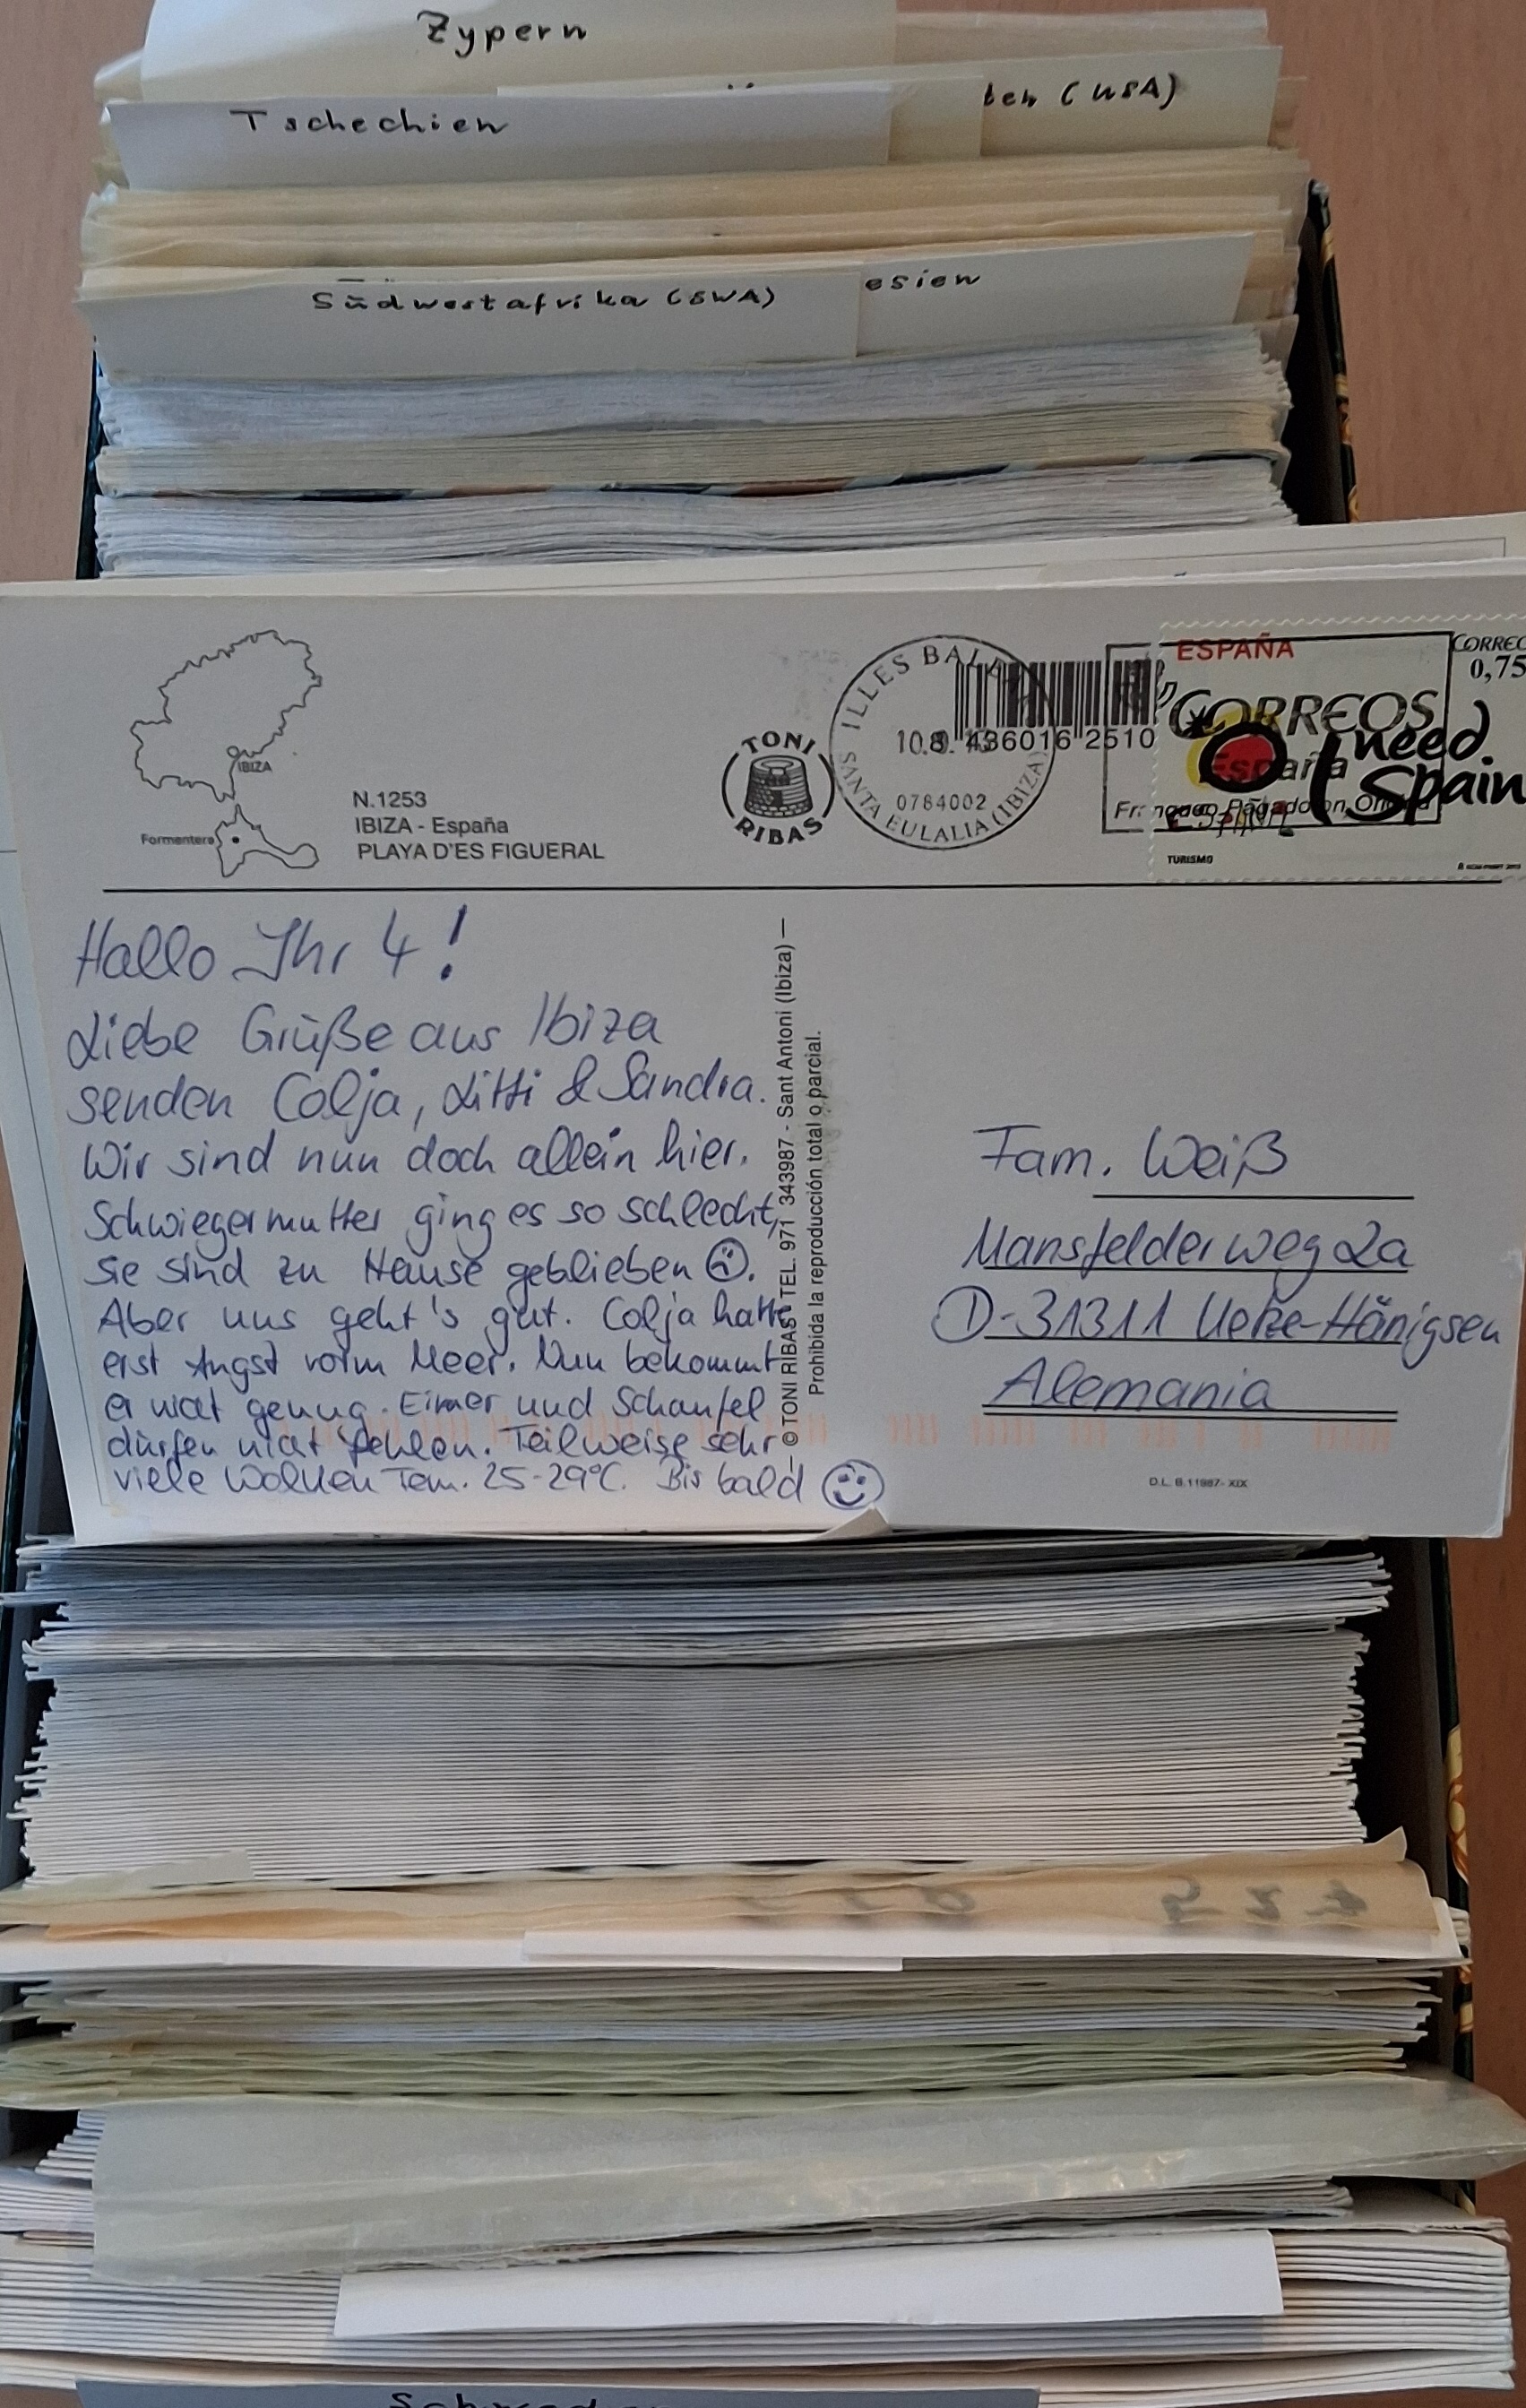 Zypern
ten (USA)
Tschechien
esien
Südwestafrika (SWA)
IBIZA
Formentera
N.1253
IBIZA - España
PLAYA D'ES FIGUERAL
TONI
RIBAS
ILLES
10.8.
0784002
SANTA EULALIA (IBIZA)
436016 2510
ESPAÑA
CORREOS
España
CORREO
0,75
I need
Spain
TURISMO
Hallo Ihr 4!
Liebe Grüße aus Ibiza
senden Colja, Litti & Sandra.
Wir sind nun doch allein hier.
Schwiegermutter ging es so schlecht,
sie sind zu Hause geblieben ☹.
Aber uns geht's gut. Colja hatte
erst Angst vorm Meer. Nun bekommt
er nicht genug. Eimer und Schaufel
dürfen nicht fehlen. Teilweise sehr
viele Wolken Tem. 25-29°C. Bis bald ☺
© TONI RIBAS - TEL. 971 343987 - Sant Antoni (Ibiza) —
Prohibida la reproducción total o parcial.
Fam. Weiß
Mansfelder weg 2a
D-31311 Uetze-Hänigsen
Alemania
D.L. B.11987- XIX